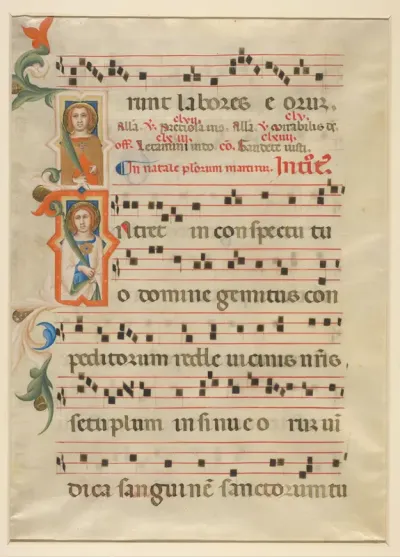 runt labores eorum.
clxii. clv.
Alla. V. Preciosa ino. Alla. V. mirabilis ds.
clxiii. clxiiii.
off. Letamini in do co. Gaudete iusti.
In natale plorum martirum. Introit.
Intret in conspectu tu
o domine gemitus con
peditorum redde uicinis nris
septuplum in sinu eorum uin
dica sanguine sanctorum tu